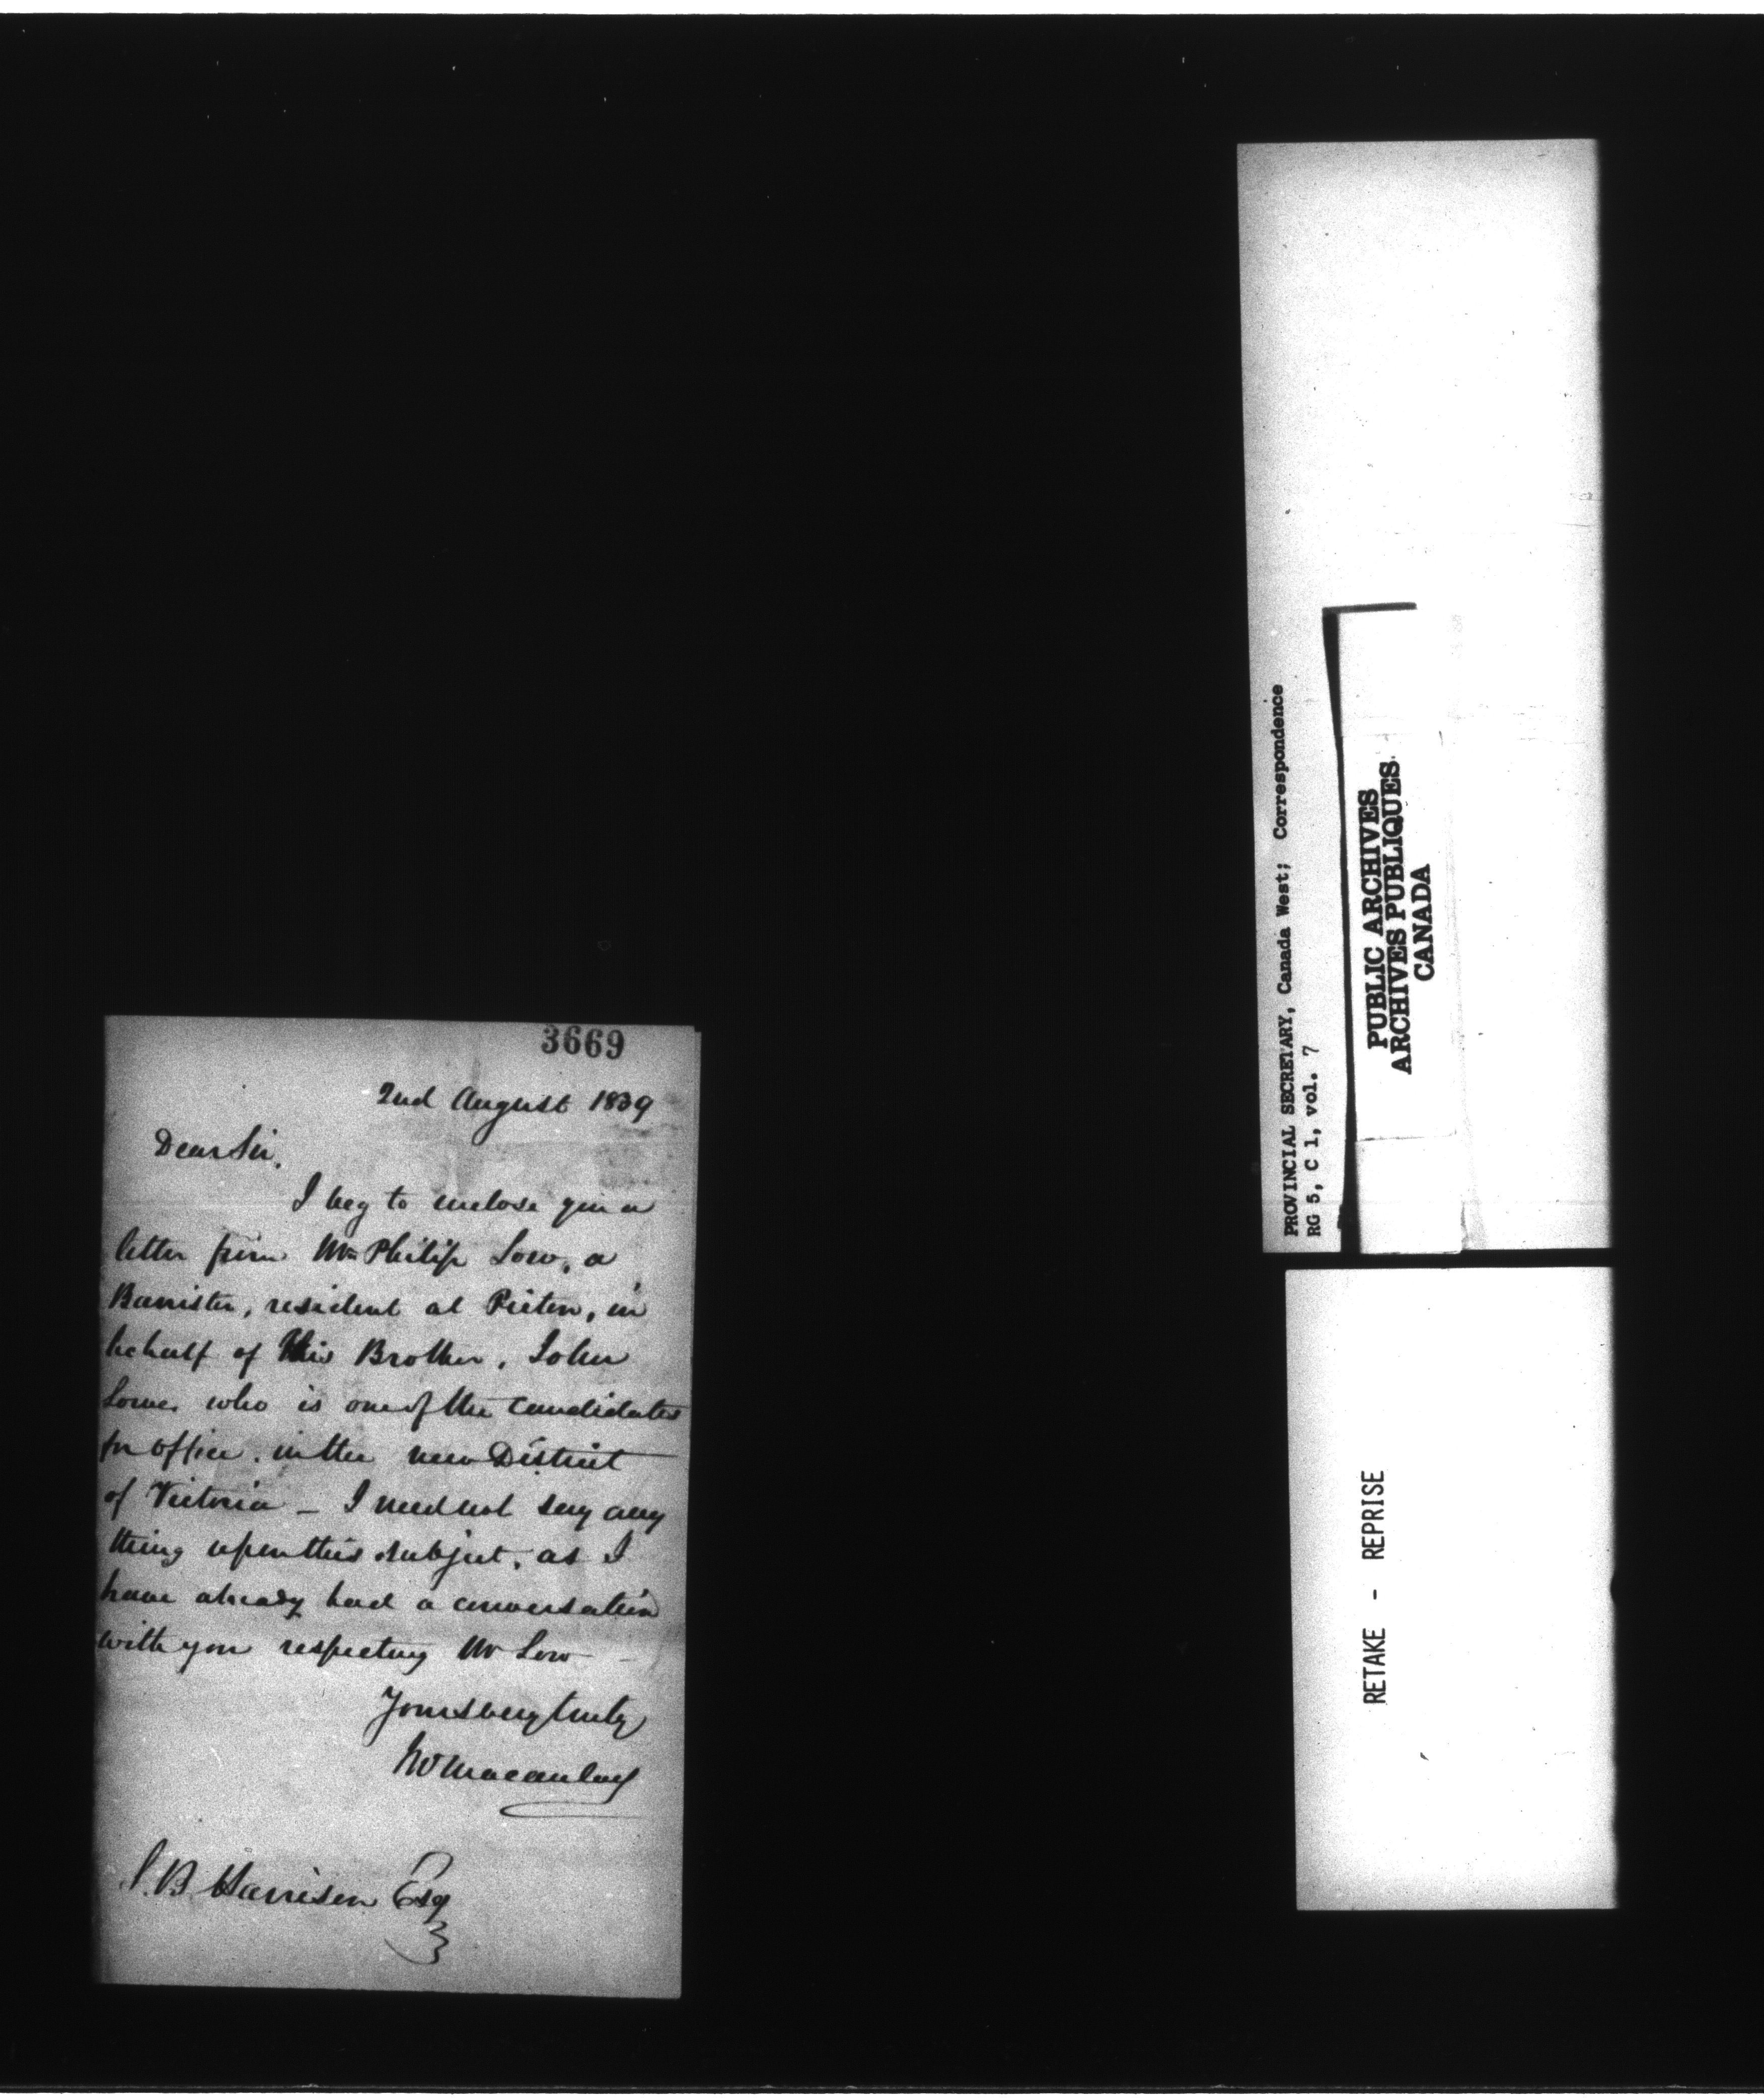 3669
2nd August 1839
Dear Sir,
I beg to enclose you a
letter from Mr Philip Low, a
Barrister, resident at Picton, in
behalf of his Brother, John
Lowe, who is one of the candidates
for office, in the new District
of Victoria — I need not say any
thing upon this subject, as I
have already had a conversation
with you respecting Mr Low —
Yours very truly
Macaulay
S. B. Harrison Esq
PROVINCIAL SECRETARY, Canada West; Correspondence
RG 5, C 1, vol. 7
PUBLIC ARCHIVES
ARCHIVES PUBLIQUES
CANADA
RETAKE - REPRISE